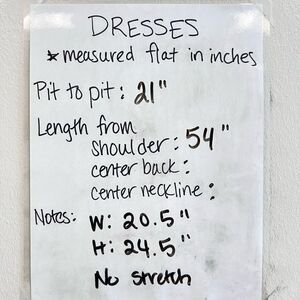 DRESSES
* measured flat in inches
Pit to pit: 21"
Length from
shoulder: 54"
center back:
center neckline:
Notes: W: 20.5"
H: 24.5"
No stretch